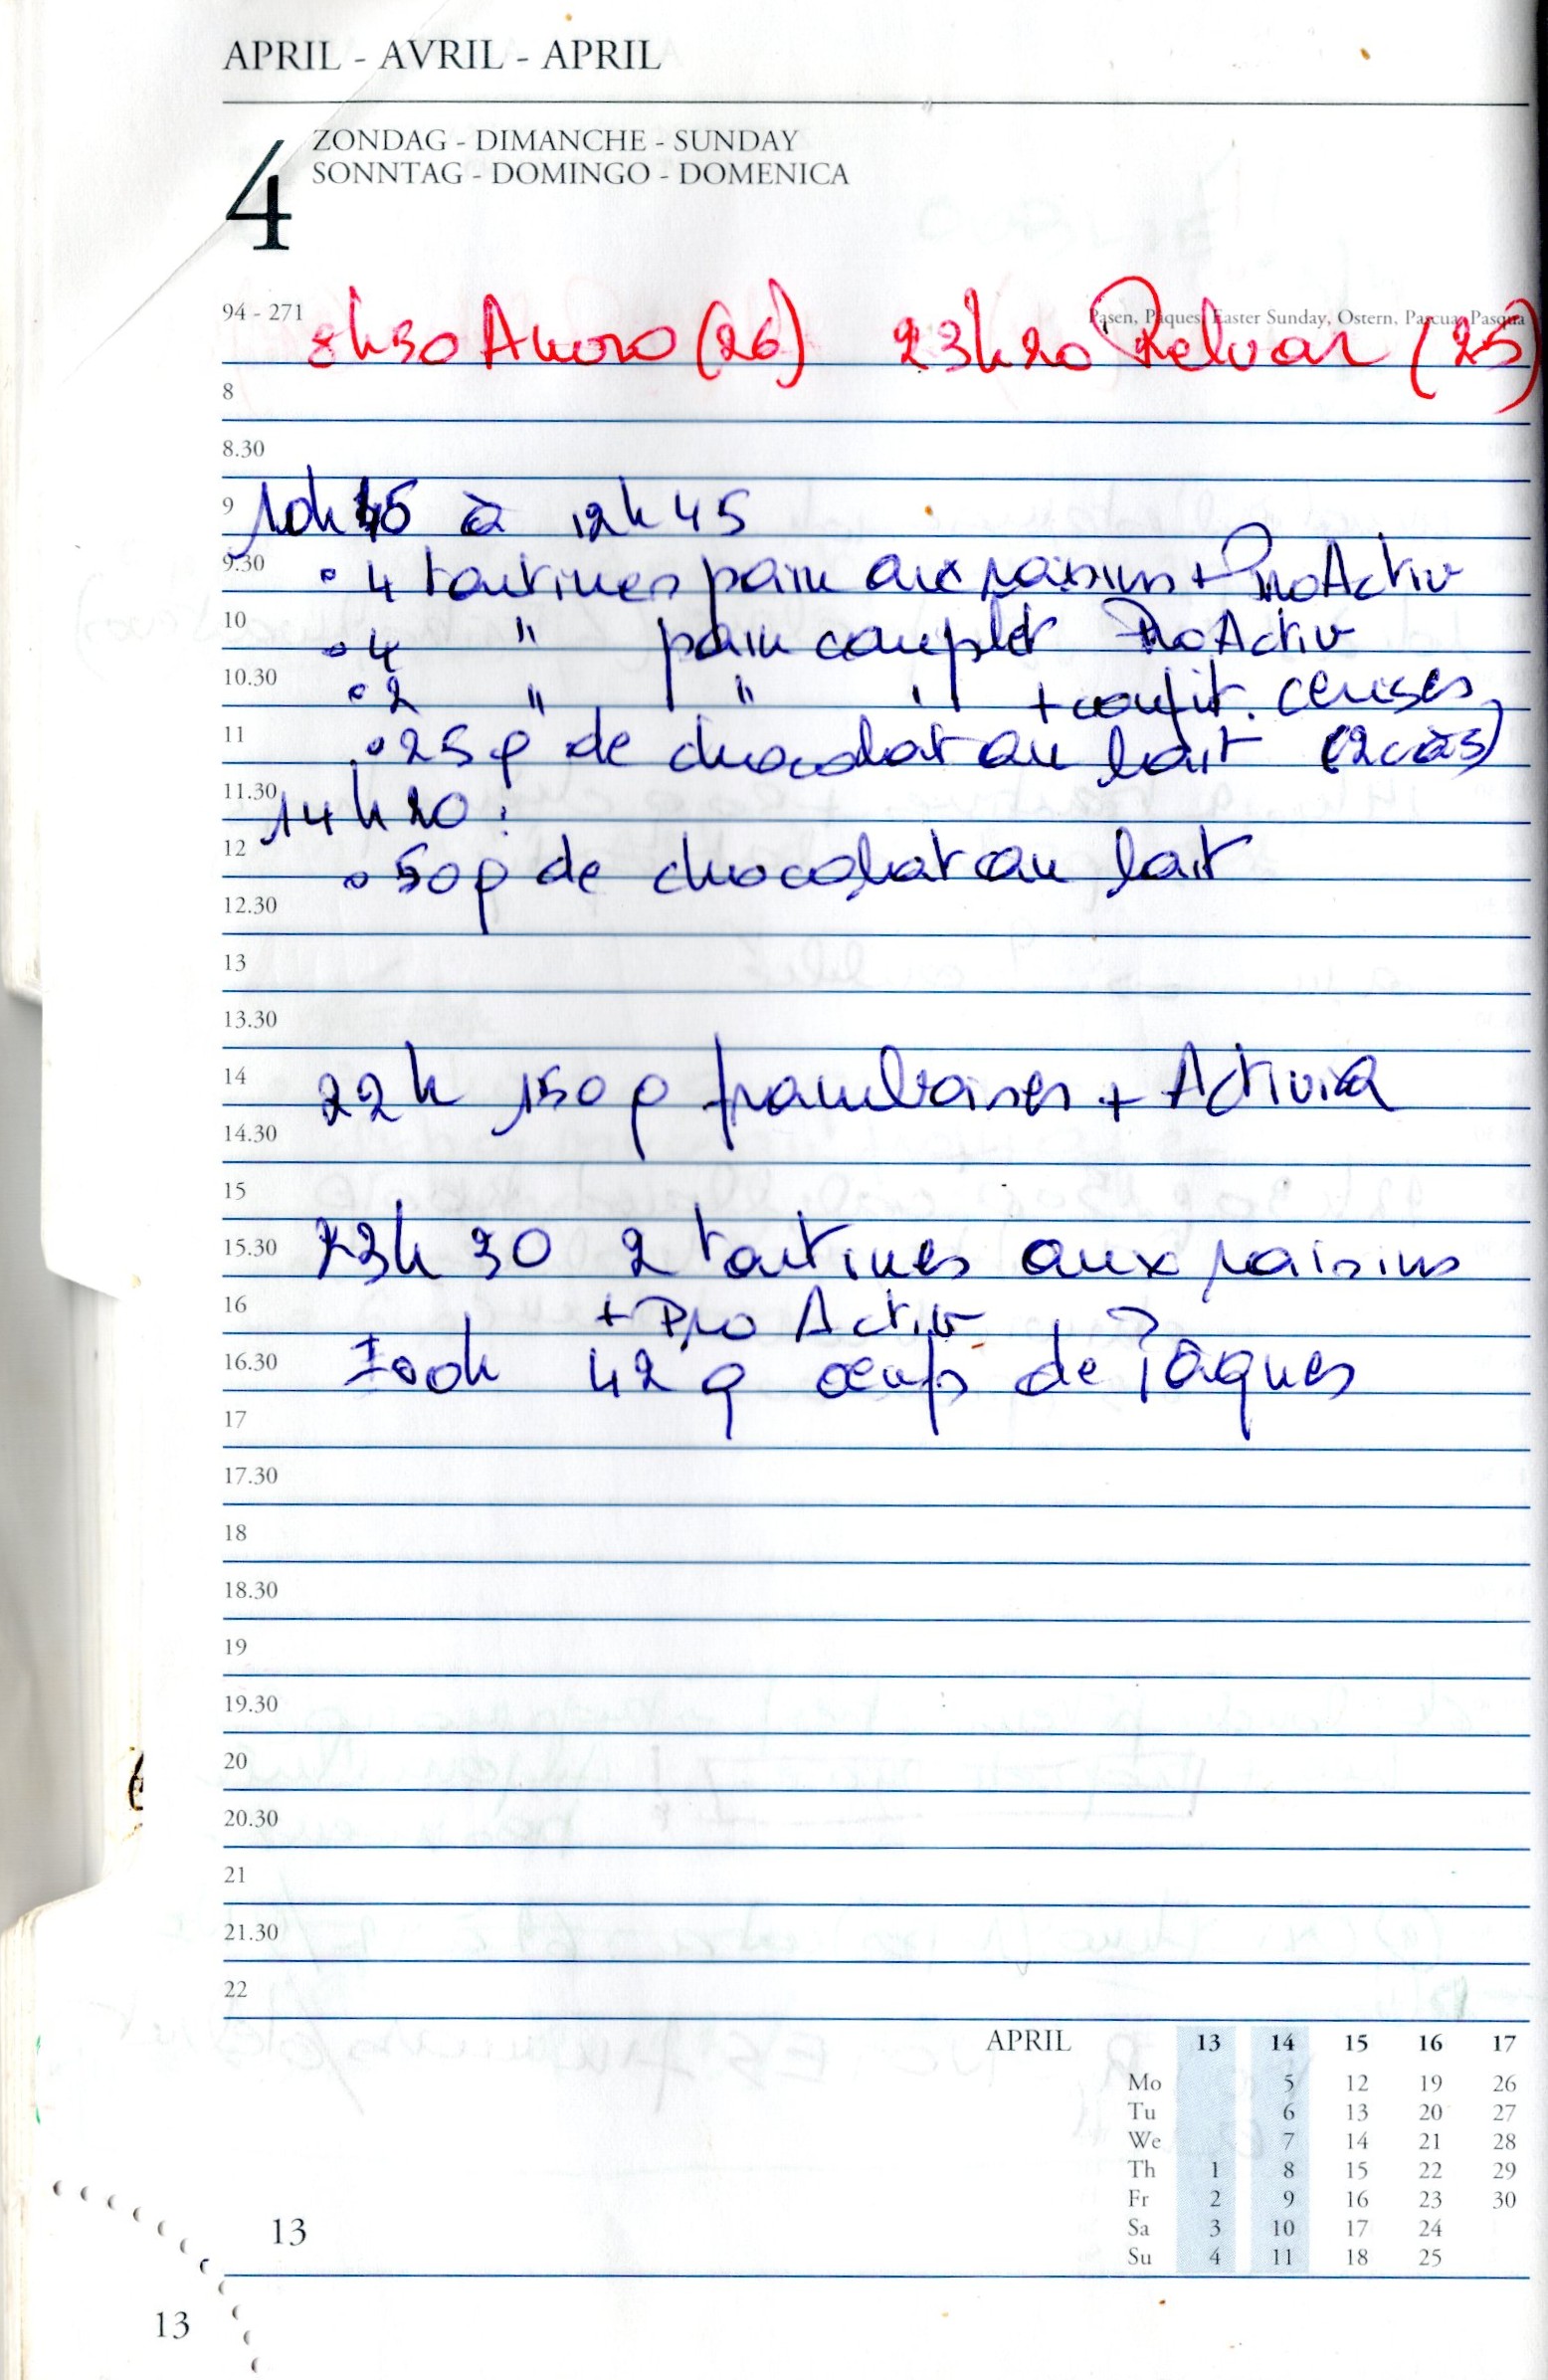 APRIL - AVRIL - APRIL
4
ZONDAG - DIMANCHE - SUNDAY
SONNTAG - DOMINGO - DOMENICA
94 - 271
Pasen, Pâques, Easter Sunday, Ostern, Pascua, Pasqua
8h30 (26) 23h20 (25)
8
8.30
9
10h45 à 12h45
9.30
• 4 tartines pain aux raisins + ProActiv
10
• 4 " pain complet ProActiv
10.30
• 2 " " " + confit. cerises
11
• 25 g de chocolat au lait (2 càs)
11.30
14h20 :
12
• 50 g de chocolat au lait
12.30
13
13.30
14
22h 150 g framboises + Activia
14.30
15
15.30
23h 30 2 tartines aux raisins
16
+ Pro Activ
16.30
42 g œufs de Pâques
17
17.30
18
18.30
19
19.30
20
20.30
21
21.30
22
APRIL 13 14 15 16 17
Mo 5 12 19 26
Tu 6 13 20 27
We 7 14 21 28
Th 1 8 15 22 29
Fr 2 9 16 23 30
Sa 3 10 17 24
Su 4 11 18 25
13
13